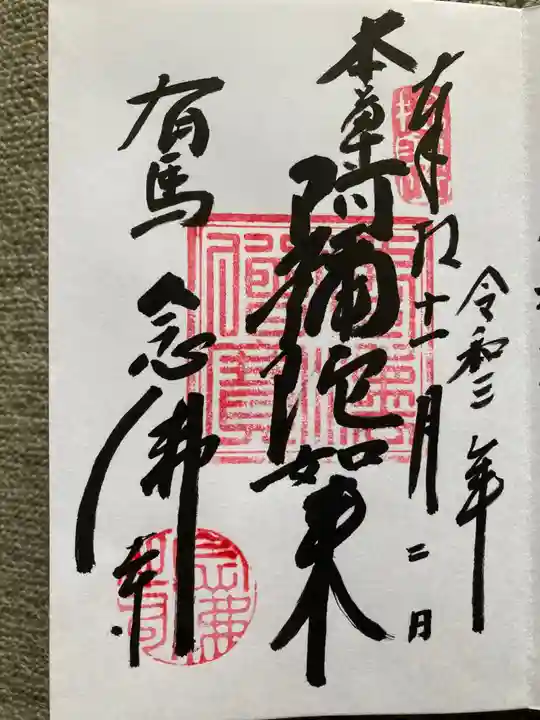 令和三年
奉拝十一月二日
本尊阿彌陀如来
有馬念佛寺